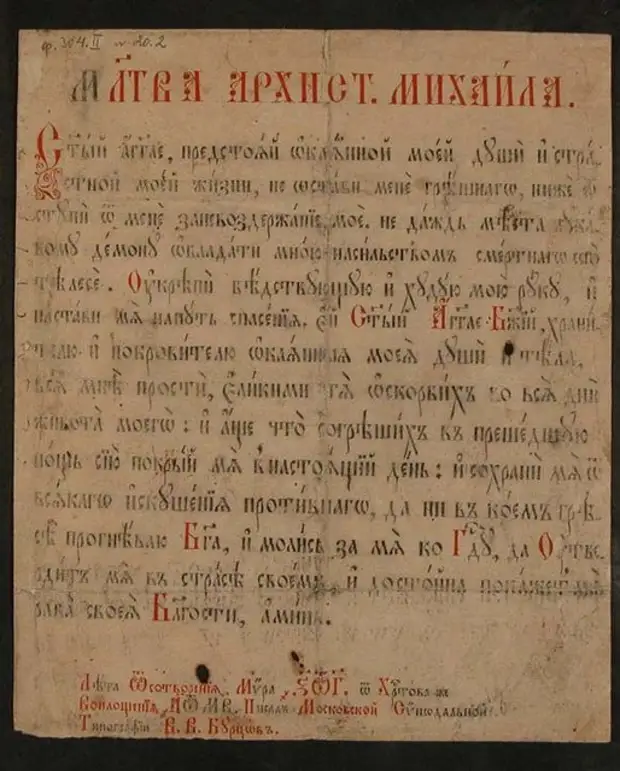 ф. 304.II № 20.2
МЛ҃ТВА АРХИСТ. МИХАИ́ЛА.
Ст҃ы́й а҆́гг҃ле, предстоѧ́й ѡ҆каѧ́нной мое́й дꙋши́ и҆ стра́
стной мое́й жи́зни, не ѡ҆ста́ви менѐ грѣ́шнагѡ, нижѐ ѿ
стꙋпѝ ѿ менє̀ за невоздержа́нїе моѐ. не да́ждь мѣ́ста лꙋка́
вомꙋ де́монꙋ ѡ҆блада́ти мно́ю наси́льствомъ сме́ртнагѡ сегѡ̀
тѣлесѐ. Оу҆крѣпѝ бѣ́дствꙋющꙋю и҆ хꙋдꙋ́ю мою̀ рꙋ́кꙋ, и҆
наста́ви мѧ̀ на пꙋ́ть спасе́нїѧ. Е҆́й Ст҃ы́й А҆́гг҃ле Бж҃їй, храни́
телю и҆ покрови́телю ѡ҆каѧ́нныѧ моеѧ̀ дꙋшѝ и҆ тѣ́ла,
всѧ̑ мнѣ̀ простѝ, є҆ли́кими тѧ̀ ѡ҆скорби́хъ во всѧ̑ дни̑
живота̀ моегѡ̀: и҆ а҆́ще что̀ согрѣши́хъ въ преше́дшꙋю
но́щь сїю̀ покры́й мѧ̀ в настоѧ́щїй де́нь: и҆ сохранѝ мѧ̀ ѿ
всѧ́кагѡ и҆скꙋше́нїѧ проти́внагѡ, да ни въ ко́емъ грѣ
сѣ̀ прогнѣ́ваю Бг҃а, и҆ моли́сѧ за мѧ̀ ко Гд҃ꙋ, да Оу҆тве
рди́тъ мѧ̀ въ стра́сѣ своє́мъ, и҆ досто́йна пока́жетъ мѧ̀
раба̀ своеѧ̀ Бл҃гости, а҆ми́нь.
Лѣта Ѿ сотворенїѧ Мїра ѿ Хр҃това
Воплощенїѧ ҂АЦМВ. Писалъ Московской Сѵнодальной
Типографїи В. В. Бурцовъ.